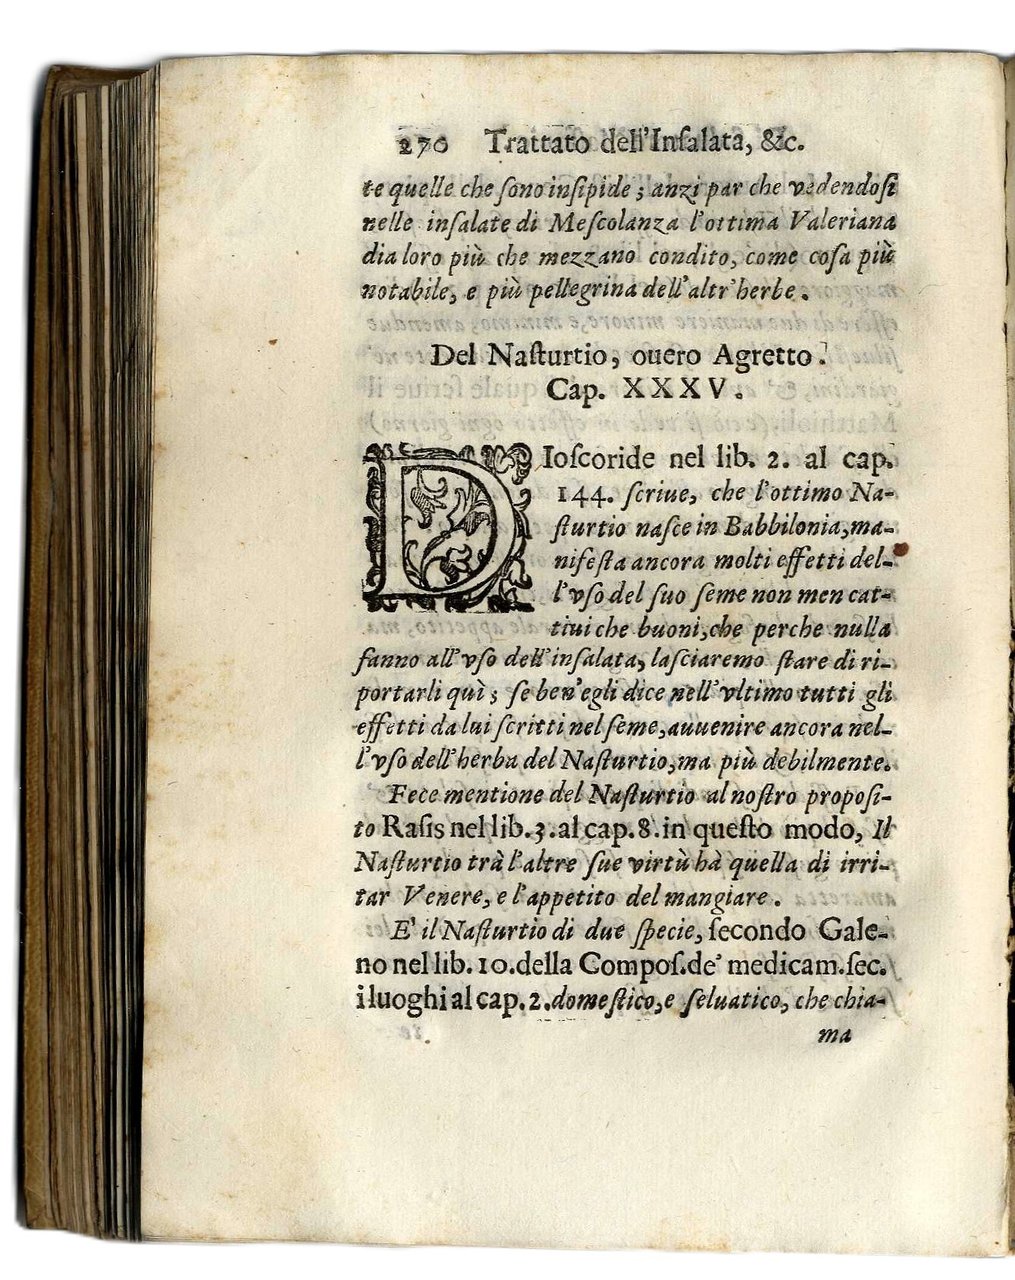 270 Trattato dell'Inſalata, &c.
te quelle che ſono inſipide; anzi par che vedendoſi
nelle inſalate di Meſcolanza l'ottima Valeriana
dia loro più che mezzano condito, come coſa più
notabile, e più pellegrina dell'altr'herbe.
Del Naſturtio, ouero Agretto.
Cap. XXXV.
DIoſcoride nel lib. 2. al cap.
144. ſcriue, che l'ottimo Na-
ſturtio naſce in Babbilonia, ma-
nifeſta ancora molti effetti del-
l'vſo del ſuo ſeme non men cat-
tiui che buoni, che perche nulla
fanno all'vſo dell'inſalata, laſciaremo ſtare di ri-
portarli quì; ſe ben'egli dice nell'vltimo tutti gli
effetti da lui ſcritti nel ſeme, auuenire ancora nel-
l'vſo dell'herba del Naſturtio, ma più debilmente.
Fece mentione del Naſturtio al noſtro propoſi-
to Raſis nel lib. 3. al cap. 8. in queſto modo, Il
Naſturtio trà l'altre ſue virtù hà quella di irri-
tar Venere, e l'appetito del mangiare.
E' il Naſturtio di due ſpecie, ſecondo Gale-
no nel lib. 10. della Compoſ. de' medicam. ſec.
i luoghi al cap. 2. domeſtico, e ſeluatico, che chia-
ma